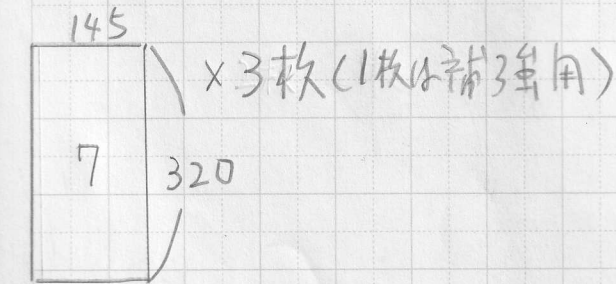 145
×3枚(1枚は補強用)
7
320